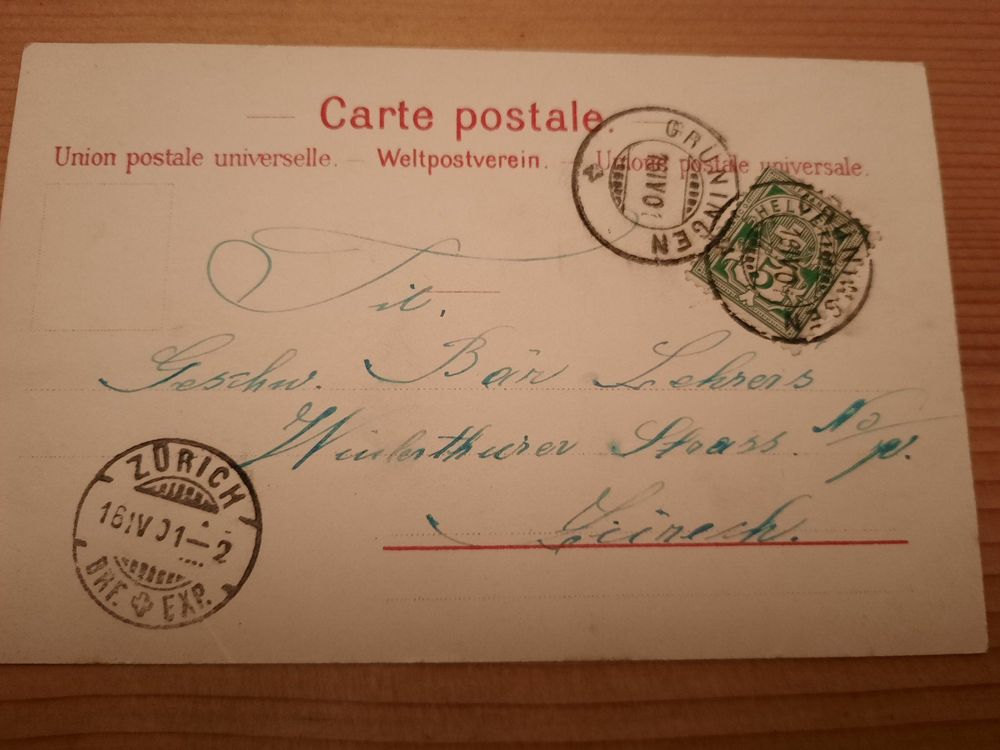 Carte postale.
Union postale universelle. — Weltpostverein. — Unione postale universale.
GRÜNINGEN
HELVETIA
5
GRÜNINGEN
Tit.
Geschw. Bär Lehrers
Winterthurer Strass No
Zürich.
ZÜRICH
16 IV 01 – 2
BHF. EXP.